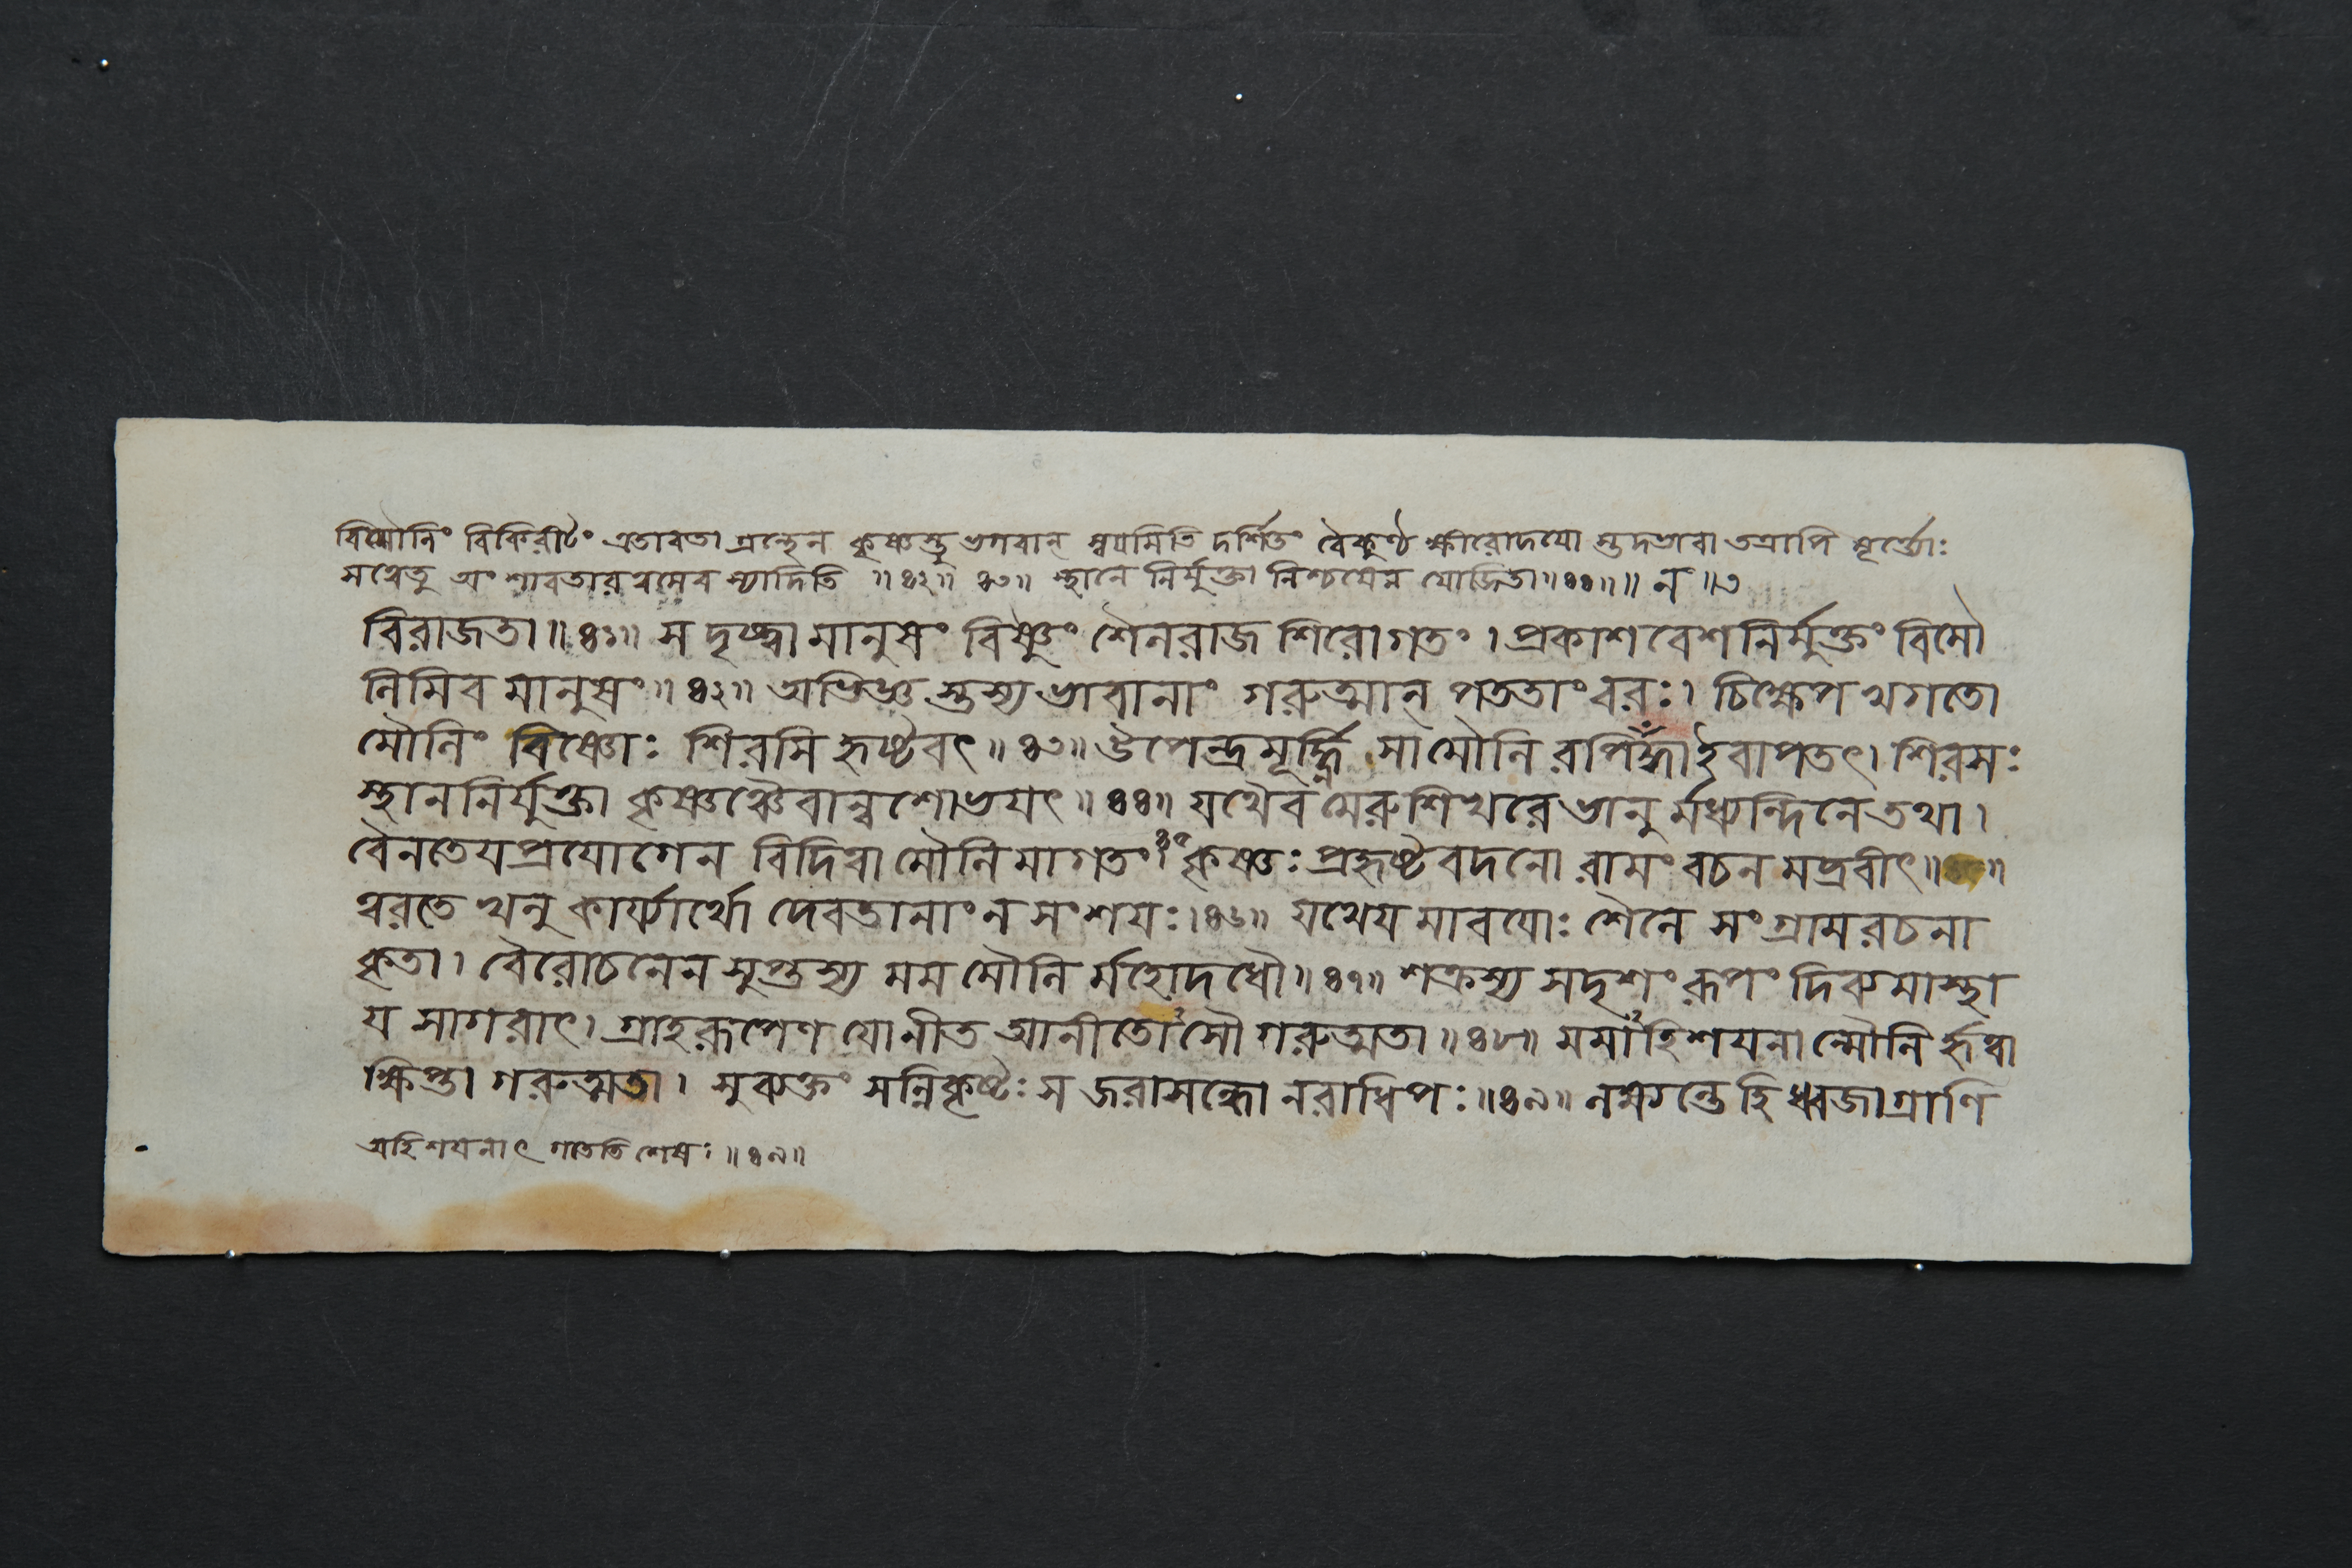 বিমৌলিং বিকিরীটং এতাবতা গ্রন্থেন কৃষ্ণস্তু ভগবান্ স্বয়মিতি দর্শিতং বৈকুণ্ঠ ক্ষীরোদয়ো স্তুদভাবা তত্রাপি মূর্ত্ত্যোঃ
সত্বেতু অংশাবতারত্বমেব স্যাদিতি ॥ ৪২ ॥ ৪৩ ॥ স্থানে নির্মুক্তা নিশ্চয়েন যোজিতা ॥ ৪৪ ॥ ॥
বিরাজতা ॥ ৪১ ॥ স দৃষ্ট্বা মানুষং বিষ্ণুং শৈলরাজ শিরোগতং । প্রকাশ বেশ নির্মুক্তং বিমৌ
লিমিব মানুষং ॥ ৪২ ॥ অভিজ্ঞ স্তস্য ভাবানাং গরুত্মান্ পততাং বরঃ । চিক্ষেপ খগতো
মৌলিং বিষ্ণোঃ শিরসি হৃষ্টবৎ ॥ ৪৩ ॥ উপেন্দ্র মূর্দ্ধ্নি সা মৌলি রপিনদ্ধা ইবাপতৎ । শিরসঃ
স্থান নির্যুক্তা কৃষ্ণঞ্চৈবান্বশোভয়ৎ ॥ ৪৪ ॥ যথৈব মেরুশিখরে ভানু র্মধ্যন্দিনে তথা ।
বৈনতেয় প্রয়োগেন বিদিত্বা মৌলি মাগতং ৪৫ কৃষ্ণঃ প্রহৃষ্ট বদনো রামং বচন মব্রবীৎ ॥ ॥
ত্বরতে খলু কার্য্যার্থো দেবতানাং ন সংশয়ঃ । ৪৬ ॥ যথেয় মাবয়োঃ শৈলে সংগ্রাম রচনা
কৃতা । বৈরোচনেন সুপ্তস্য মম মৌলি র্মহোদধৌ ॥ ৪৭ ॥ শক্রস্য সদৃশং রূপং দিব্যমাস্থা
য় সাগরাৎ । গ্রাহরূপেণ যো নীত আনীতোঽসৌ গরুত্মতা ॥ ৪৮ ॥ মমাহিশয়না ন্মৌলি র্হৃত্বা
ক্ষিপ্তা গরুত্মতা । সুব্যক্তং সন্নিকৃষ্টঃ স জরাসন্ধো নরাধিপঃ ॥ ৪৯ ॥ লক্ষ্যন্তে হি ধ্বজাগ্রাণি
অহিশয়নাৎ গতেতি শেষঃ ॥ ৪৯ ॥